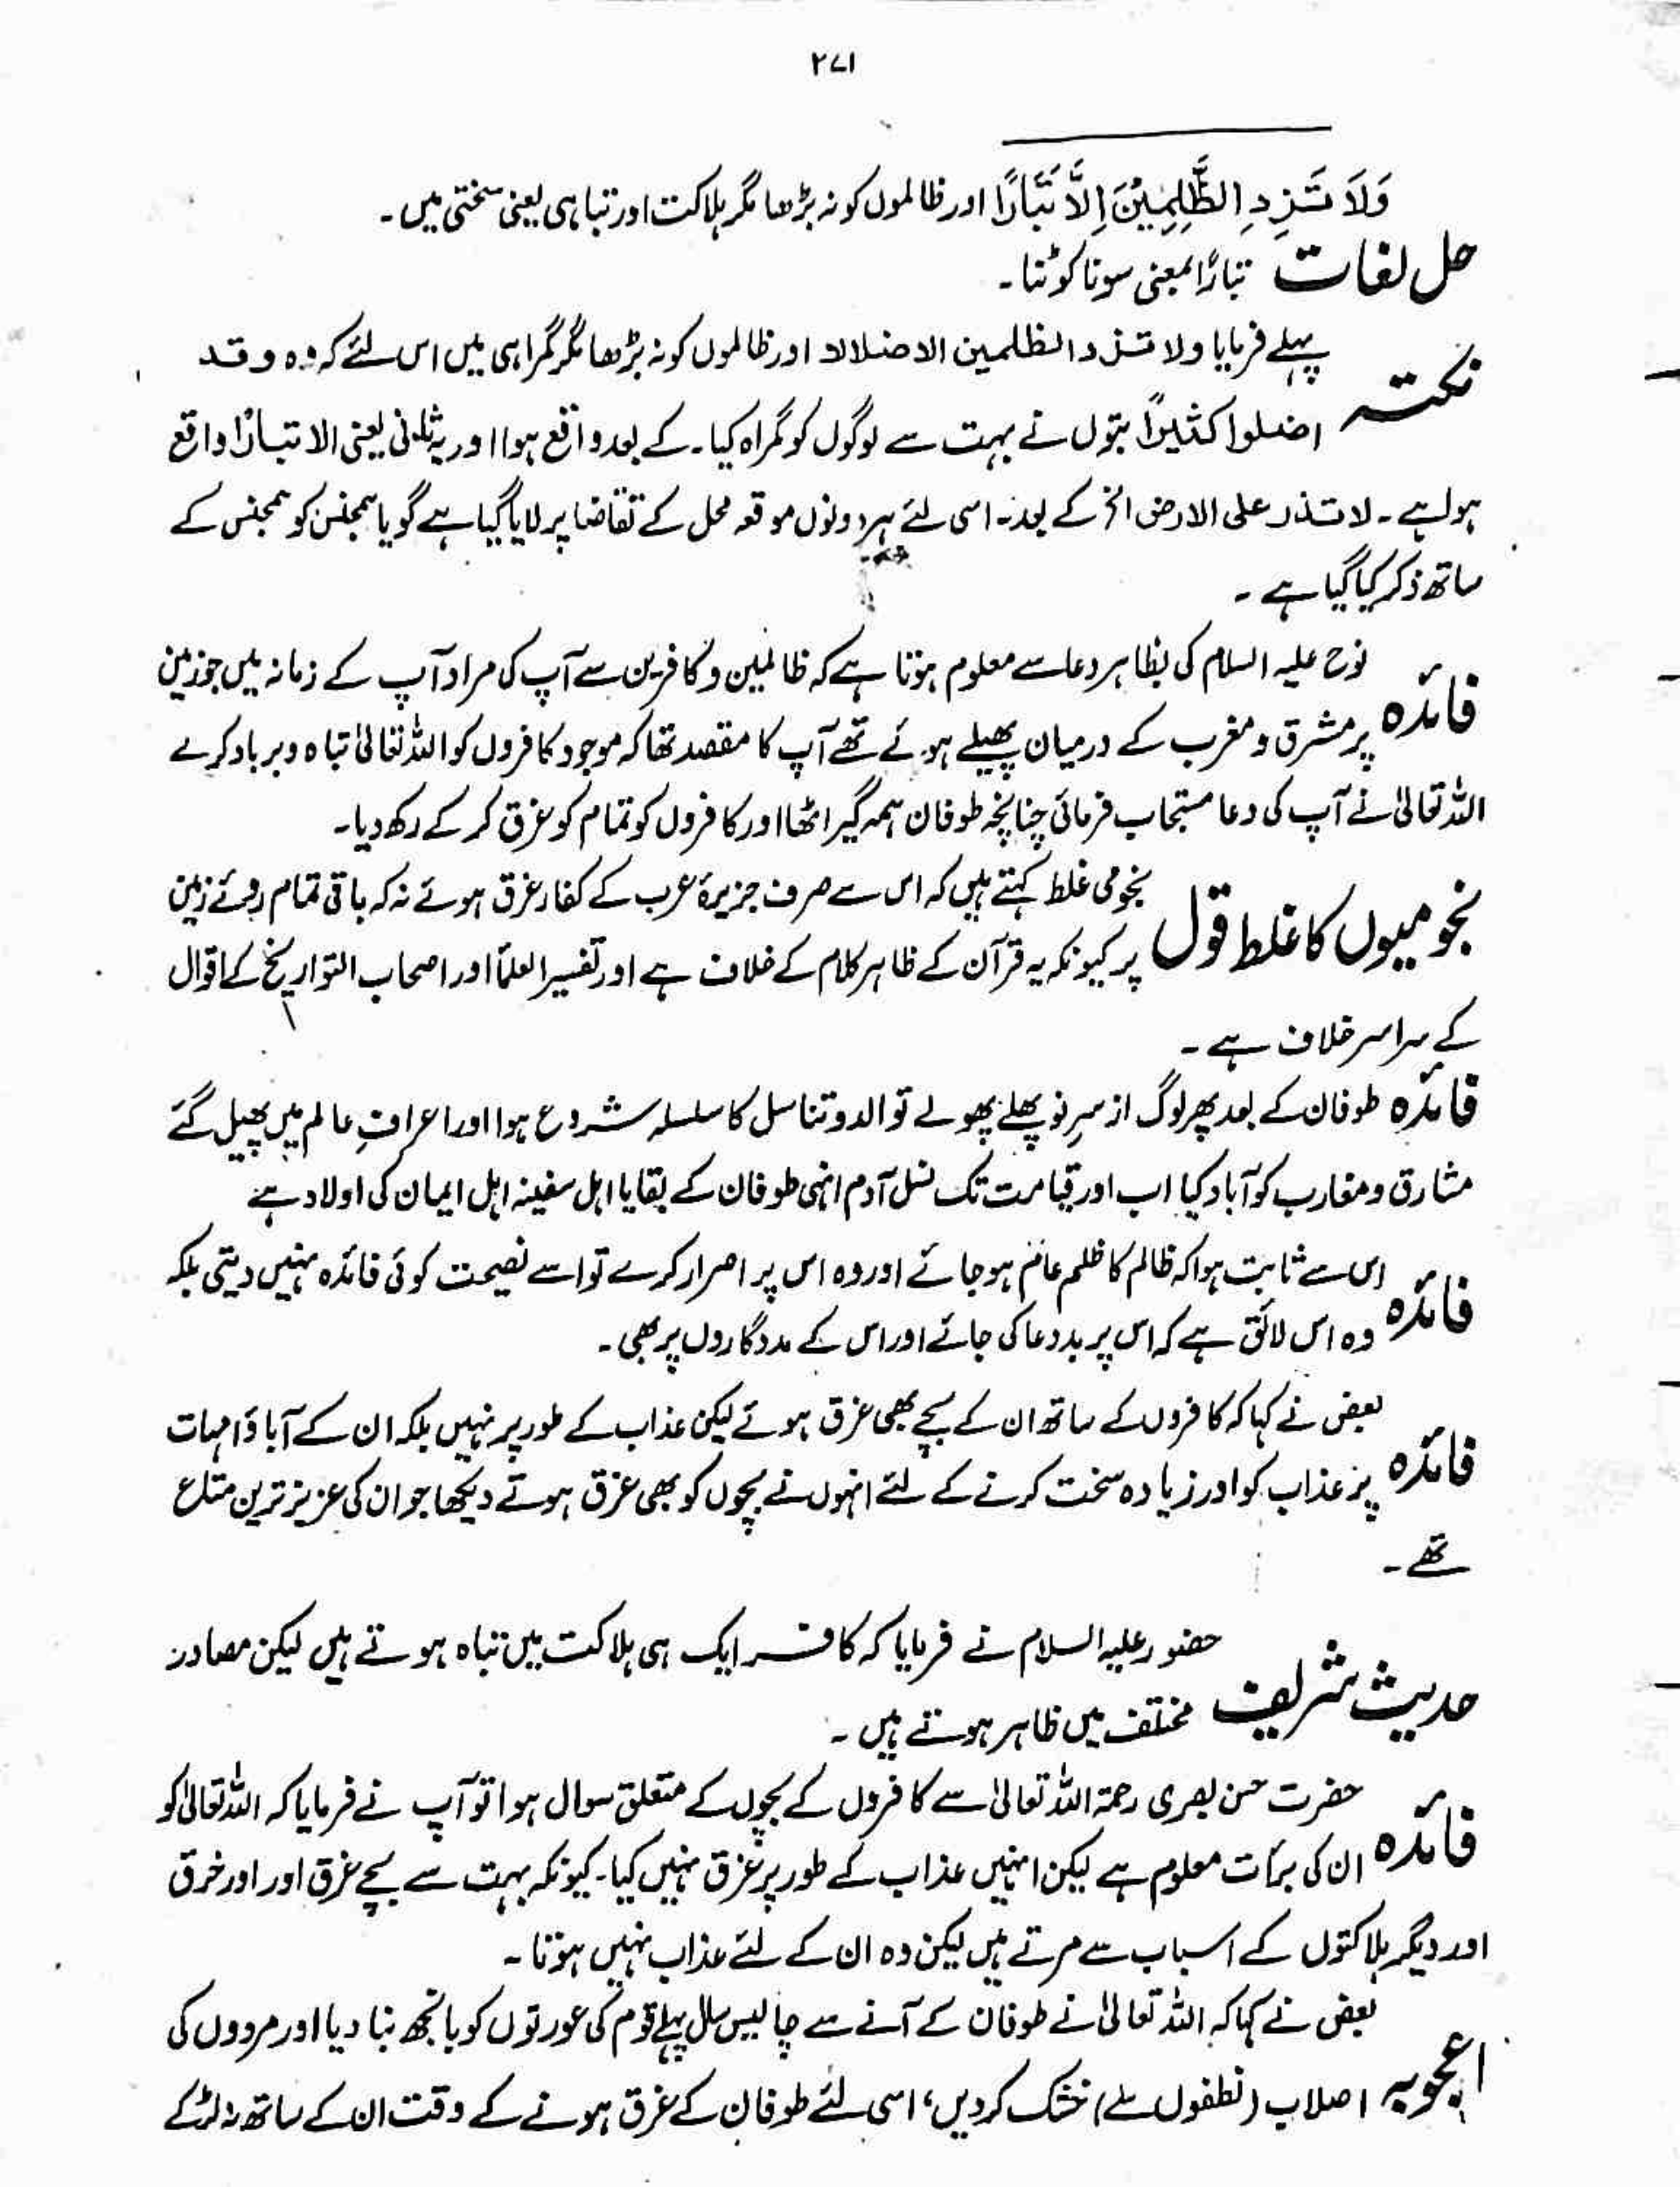 ۲۷۱
وَلَا تَزِدِ الظّٰلِمِيْنَ اِلَّا تَبَارًا اور ظالموں کو نہ بڑھا مگر ہلاکت اور تباہی یعنی سختی میں ۔
حل لغات تبارًا بمعنی سونا کوٹنا ۔
نکتہ پہلے فرمایا ولا تزد الظلمین الا ضلالا اور ظالموں کو نہ بڑھا مگر گمراہی میں اس لئے کہ وہ وقد
اضلوا کثیرًا بتوں نے بہت سے لوگوں کو گمراہ کیا ۔ کے بعد واقع ہوا اور یہ ثانی یعنی الا تبارًا واقع
ہوا ہے ۔ لا تذر علی الارض الخ کے بعد ۔ اسی لئے ہر دونوں موقعہ محل کے تقاضا پر لایا گیا ہے گویا ہمجنس کو ہمجنس کے
ساتھ ذکر کیا گیا ہے ۔
فائدہ نوح علیہ السلام کی بظاہر دعا سے معلوم ہوتا ہے کہ ظالمین و کافرین سے آپ کی مراد آپ کے زمانہ میں جو زمین
پر مشرق و مغرب کے درمیان پھیلے ہوئے تھے آپ کا مقصد تھا کہ موجود کافروں کو اللہ تعالیٰ تباہ و برباد کرے
اللہ تعالیٰ نے آپ کی دعا مستجاب فرمائی چنانچہ طوفان ہمہ گیر اٹھا اور کافروں کو تمام کو غرق کر کے رکھ دیا ۔
نجومیوں کا غلط قول نجومی غلط کہتے ہیں کہ اس سے صرف جزیرۂ عرب کے کفار غرق ہوئے نہ کہ باقی تمام روئے زمین
پر کیونکہ یہ قرآن کے ظاہر کلام کے خلاف ہے اور تفسیر العلمآ اور اصحاب التواریخ کے اقوال
کے سراسر خلاف ہے ۔
فائدہ طوفان کے بعد پھر لوگ از سرِ نو پھلے پھولے توالد و تناسل کا سلسلہ شروع ہوا اور اعرافِ عالم میں پھیل گئے
مشارق و مغارب کو آباد کیا اب اور قیامت تک نسل آدم انہی طوفان کے بقایا اہل سفینہ اہل ایمان کی اولاد ہے
فائدہ اس سے ثابت ہوا کہ ظالم کا ظلم عام ہو جائے اور وہ اس پر اصرار کرے تو اسے نصیحت کوئی فائدہ نہیں دیتی بلکہ
وہ اس لائق ہے کہ اس پر بددعا کی جائے اور اس کے مددگاروں پر بھی ۔
فائدہ بعض نے کہا کہ کافروں کے ساتھ ان کے بچے بھی غرق ہوئے لیکن عذاب کے طور پر نہیں بلکہ ان کے آبا و امہات
پر عذاب کو اور زیادہ سخت کرنے کے لئے انہوں نے بچوں کو بھی غرق ہوتے دیکھا جو ان کی عزیز ترین متاع
تھے ۔
حدیث شریف حضور علیہ السلام نے فرمایا کہ کافر ایک ہی ہلاکت میں تباہ ہوتے ہیں لیکن مصادر
مختلف میں ظاہر ہوتے ہیں ۔
فائدہ حضرت حسن بصری رحمۃ اللہ تعالیٰ سے کافروں کے بچوں کے متعلق سوال ہوا تو آپ نے فرمایا کہ اللہ تعالیٰ کو
ان کی برأت معلوم ہے لیکن انہیں عذاب کے طور پر غرق نہیں کیا ۔ کیونکہ بہت سے بچے غرق اور اور خرق
اور دیگر ہلاکتوں کے اسباب سے مرتے ہیں لیکن وہ ان کے لئے عذاب نہیں ہوتا ۔
اعجوبہ بعض نے کہا کہ اللہ تعالیٰ نے طوفان کے آنے سے چالیس سال پہلے قوم کی عورتوں کو بانجھ بنا دیا اور مردوں کی
اصلاب (نطفوں سے) خشک کر دیں، اسی لئے طوفان کے غرق ہونے کے وقت ان کے ساتھ نہ لڑکے